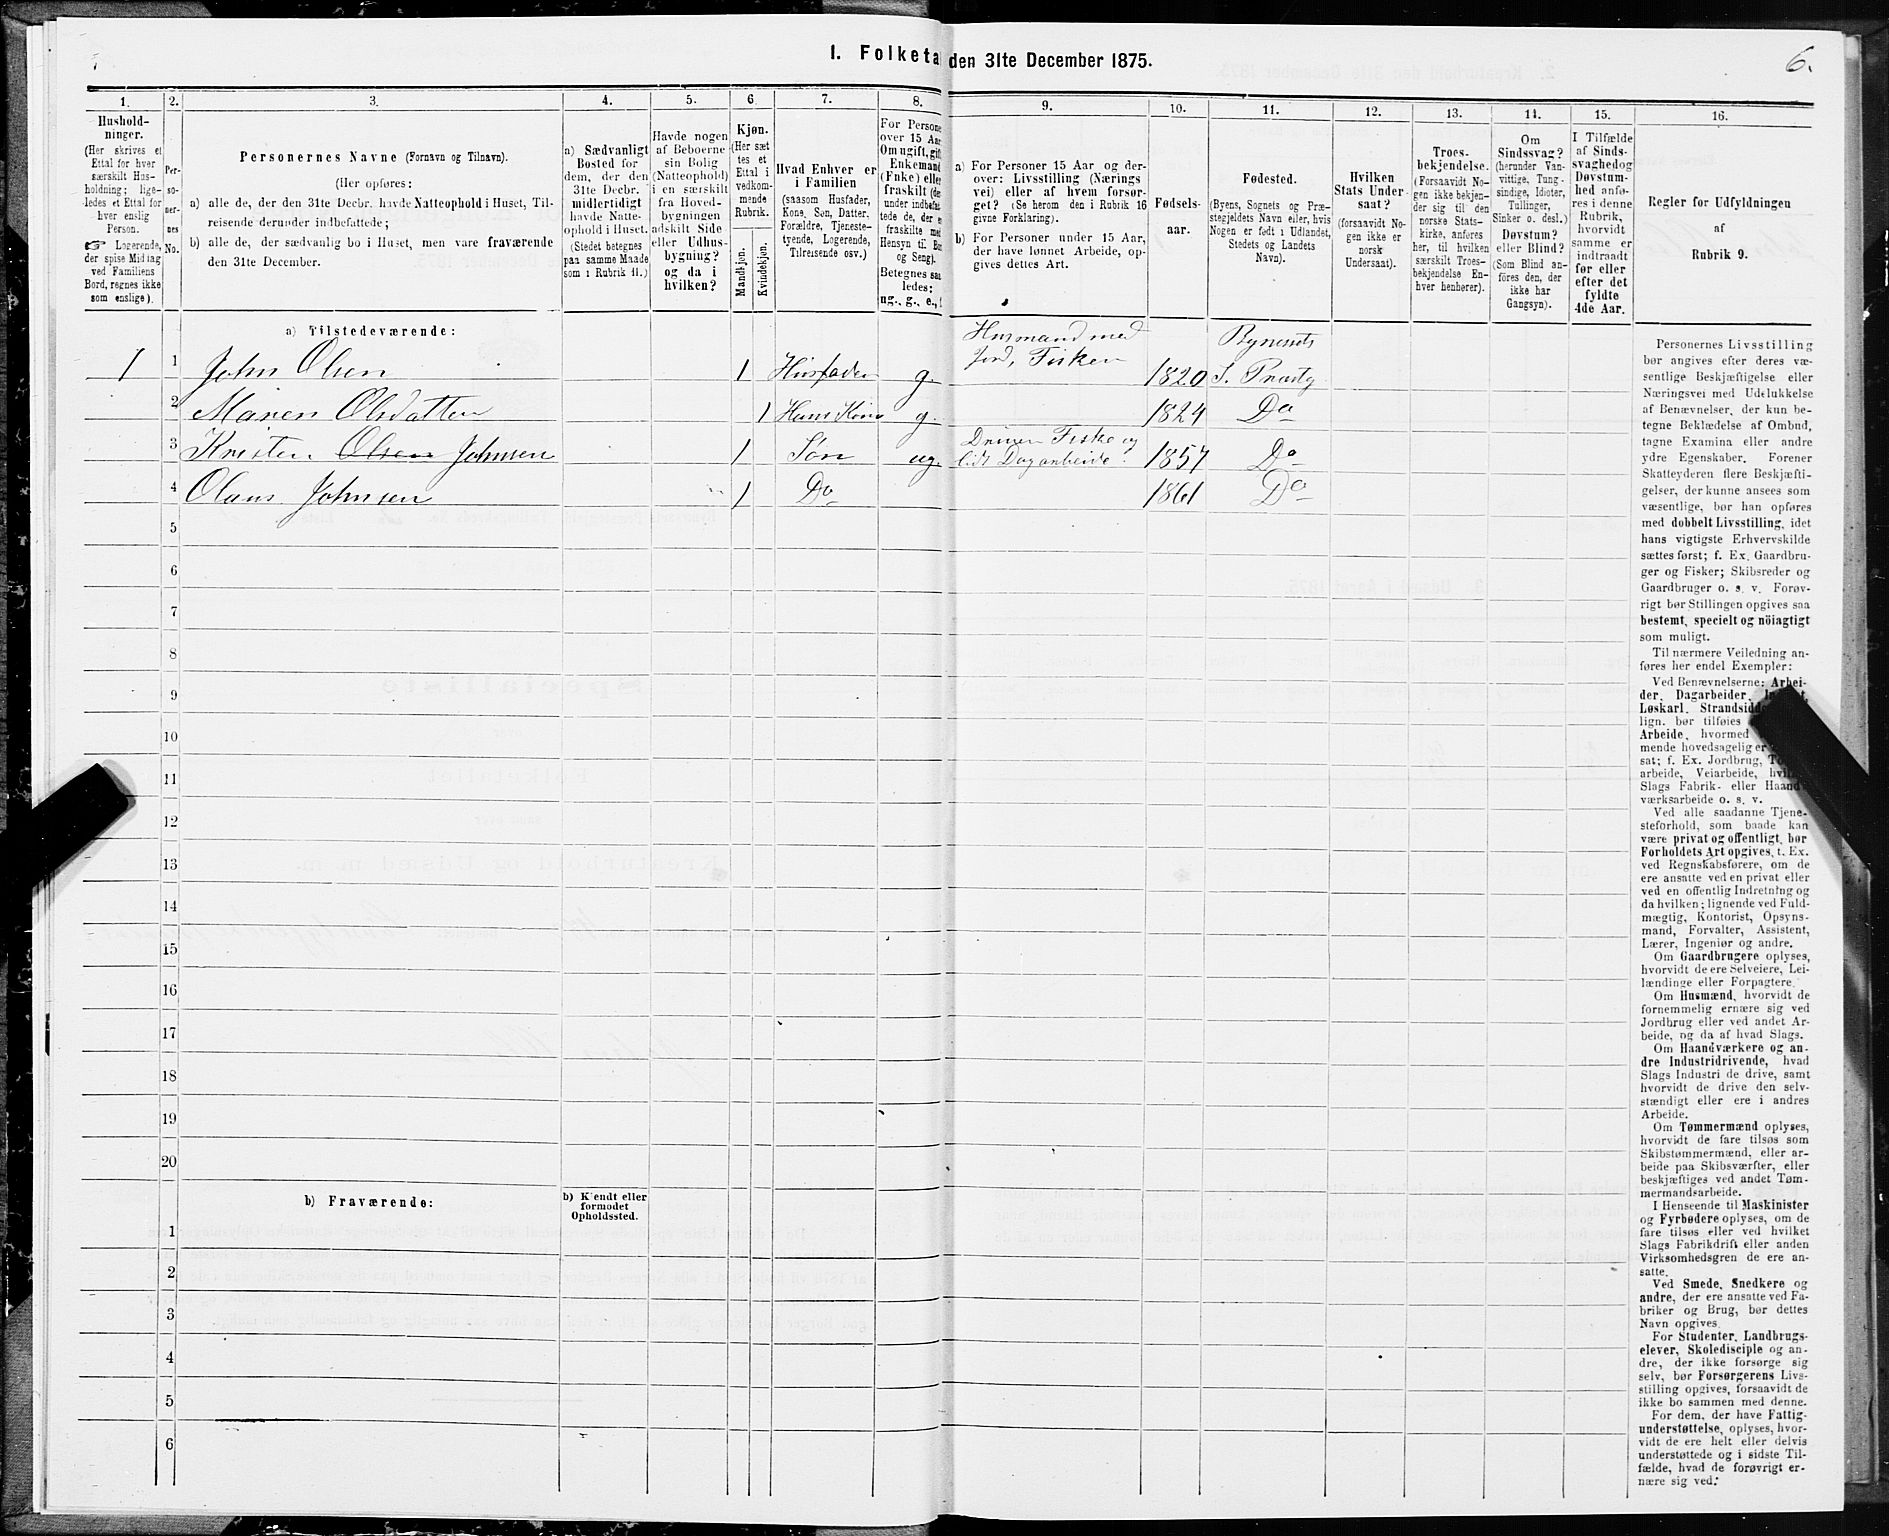 I. Folketa den 31te December 1875.
6.
1.
2.
3.
4.
5.
6
7.
8.
9.
10.
11.
12.
13.
14.
15.
16.
Hushold-
ninger.
(Her skrives et
Ettal for hver
særskilt Hus-
holdning; lige-
ledes et Ettal for
hver enslig
Person.
☞ Logerende,
der spise Middag
ved Familiens
Bord, regnes ikke
som enslige).
Per-
so-
ner-
nes
No.
Personernes Navne (Fornavn og Tilnavn).
(Her opføres:
a) alle de, der den 31te Decbr. havde Natteophold i Huset, Til-
reisende derunder indbefattede;
b) alle de, der sædvanlig bo i Huset, men vare fraværende
den 31te December.
a) Sædvanligt
Bosted for
dem, der den
31te Decbr.
midlertidigt
havde Natte-
ophold i Huset.
(Stedet betegnes
paa samme Maade
som i Rubrik 11.)
Havde nogen
af Beboerne
sin Bolig
(Natteophold)
i en særskilt
fra Hoved-
bygningen
adskilt Side
eller Udhus-
bygning?
og da i
hvilken?
Kjøn.
(Her sæt
tes et
Ettal i
vedkom-
mende
Rubrik.
Mandkjøn.
Kvindekjøn.
Hvad Enhver er
i Familien
(saasom Husfader,
Kone, Søn, Datter.
Forældre, Tjeneste-
tyende, Logerende,
Tilreisende osv.)
For Persone
over 15 Aar
Om ugift, gift
Enkemand
(Enke) eller
fraskilt (de
under indbefat
tede de, der e
fraskilte me
Hensyn til Bo
og Seng).
Betegnes saa
ledes:
ug., g., e., f
a) For Personer 15 Aar og der-
over: Livsstilling (Nærings
vei) eller af hvem forsør-
get? (Se herom den i Rubrik 16
givne Forklaring).
b) For Personer under 15 Aar,
der have lønnet Arbeide, op-
gives dettes Art.
Fødsels-
aar.
Fødested.
(Byens, Sognets og Præ-
stegjeldets Navn eller, hvis
Nogen er født i Udlandet,
Stedets og Landets
Navn).
Hvilken
Stats Under-
saat?
(forsaavidt No-
gen ikke er
norsk
Undersaat).
Troes-
bekjendelse.
(Forsaavidt No-
gen ikke bekjen-
der sig til den
norske Stats-
kirke, anføres
her, til hvilken
særskilt Troes-
bekjendelse En-
hver henhører).
Om
Sindssvag?
(herunder Van-
vittige, Tung-
sindige, Idioter,
Tullinger,
Sinker o. desl.)
Døvstum?
eller Blind?
(Som Blind an-
føres den, der
ikke har
Gangsyn).
I Tilfælde
af Sinds-
svaghed og
Døvstum-
hed anfø-
res i denne
Rubrik,
hvorvidt
samme er
indtraadt
før eller
efter det
fyldte
4de Aar.
Regler for Udfyldningen
af
Rubrik 9.
a) Tilstedeværende:
1 1 John Olsen 1 Husfader g. Husmand med
Jord, Fisker 1820 Bynesets
S. Præstg
2 Maren Olsdatter 1 Hans Kone g. 1824 Do
3 Kristen Olsen Johnsen 1 Søn ug. Driver Fiske og
lidt Dagarbeide. 1857 Do
4 Olaus Johnsen 1 Do 1861 Do
5
6
7
8
9
10
11
12
13
14
15
16
17
18
19
20
b) Fraværende:
b) Kjendt eller
formodet
Opholdssted.
1
2
3
4
5
6
Personernes Livsstilling
bør angives efter deres væ-
sentlige Beskjæftigelse eller
Næringsvei med Udelukkelse
af Benævnelser, der kun be-
tegne Beklædelse af Ombud,
tagne Examina eller andre
ydre Egenskaber. Forener
Skatteyderen flere Beskjæfti-
gelser, der kunne ansees som
væsentlige, bør han opføres
med dobbelt Livsstilling, idet
hans vigtigste Erhvervskilde
sættes først; f. Ex. Gaardbru-
ger og Fisker; Skibsreder og
Gaardbruger o. s. v. Forøv-
rigt bør Stillingen opgives saa
bestemt, specielt og nöiagtigt
som muligt.
Til nærmere Veiledning an-
føres her endel Exempler:
Ved Benævnelserne: Arbei-
der, Dagarbeider,
Løskarl, Strandsidd
lign. bør tilføies
Arbeide, hvormed
mende hovedsagelig er
sat; f. Ex. Jordbrug,
arbeide, Veiarbeide,
Slags Fabrik- eller Haand-
værksarbeide o. s. v.
Ved alle saadanne Tjene-
steforhold, som baade kan
være privat og offentligt, bør
Forholdets Art opgives, t. Ex.
ved Regnskabsførere, om de
ere ansatte ved en privat eller
ved en offentlig Indretning og
da hvilken; lignende ved Fuld-
mægtig, Kontorist, Opsyns-
mand, Forvalter, Assistent,
Lærer, Ingeniør og andre.
Om Gaardbrugere oplyses,
hvorvidt de ere Selveiere, Lei-
lændinge eller Forpagtere.
Om Husmænd, hvorvidt de
fornemmelig ernære sig ved
Jordbrug eller ved andet Ar-
beide, og da af hvad Slags.
Om Haandværkere og an-
dre Industridrivende, hvad
Slags Industri de drive, samt
hvorvidt de drive den selv-
stændigt eller ere i andres
Arbeide.
Om Tømmermænd oplyses,
hvorvidt de fare tilsøs som
Skibstømmermænd, eller ar-
beide paa Skibsværfter, eller
beskjæftiges ved andet Tøm-
mermandsarbeide.
I Henseende til Maskinister
og Fyrbødere oplyses, om de
fare tilsøs eller ved hvilket
Slags Fabrikdrift eller anden
Virksomhedsgren de ere an-
satte.
Ved Smede, Snedkere og
andre, der ere ansatte ved Fa-
briker og Brug, bør dettes
Navn opgives.
For Studenter, Landbrugs-
elever, Skoledisciple og an-
dre, der ikke forsørge sig
selv, bør Forsørgerens Livs-
stilling opgives, forsaavidt de
ikke bo sammen med denne.
For dem, der have Fattig-
understøttelse, oplyses, hvor-
vidt de ere helt eller delvis
understøttede og i sidste Til-
fælde, hvad de forøvrigt er-
nære sig ved.